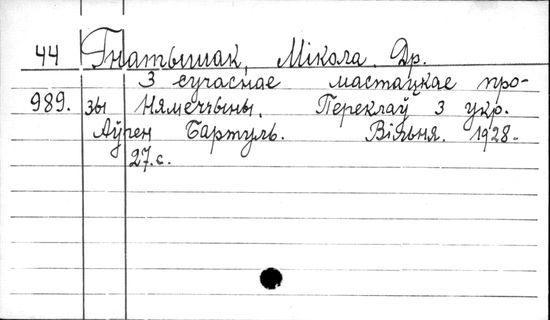 44 Гнатышак, Мікола. Др.
З сучаснае мастацкае про-
989. зы Нямеччыны. Пераклаў з укр.
Аўген Бартуль. Вільня. 1928.
27.с.